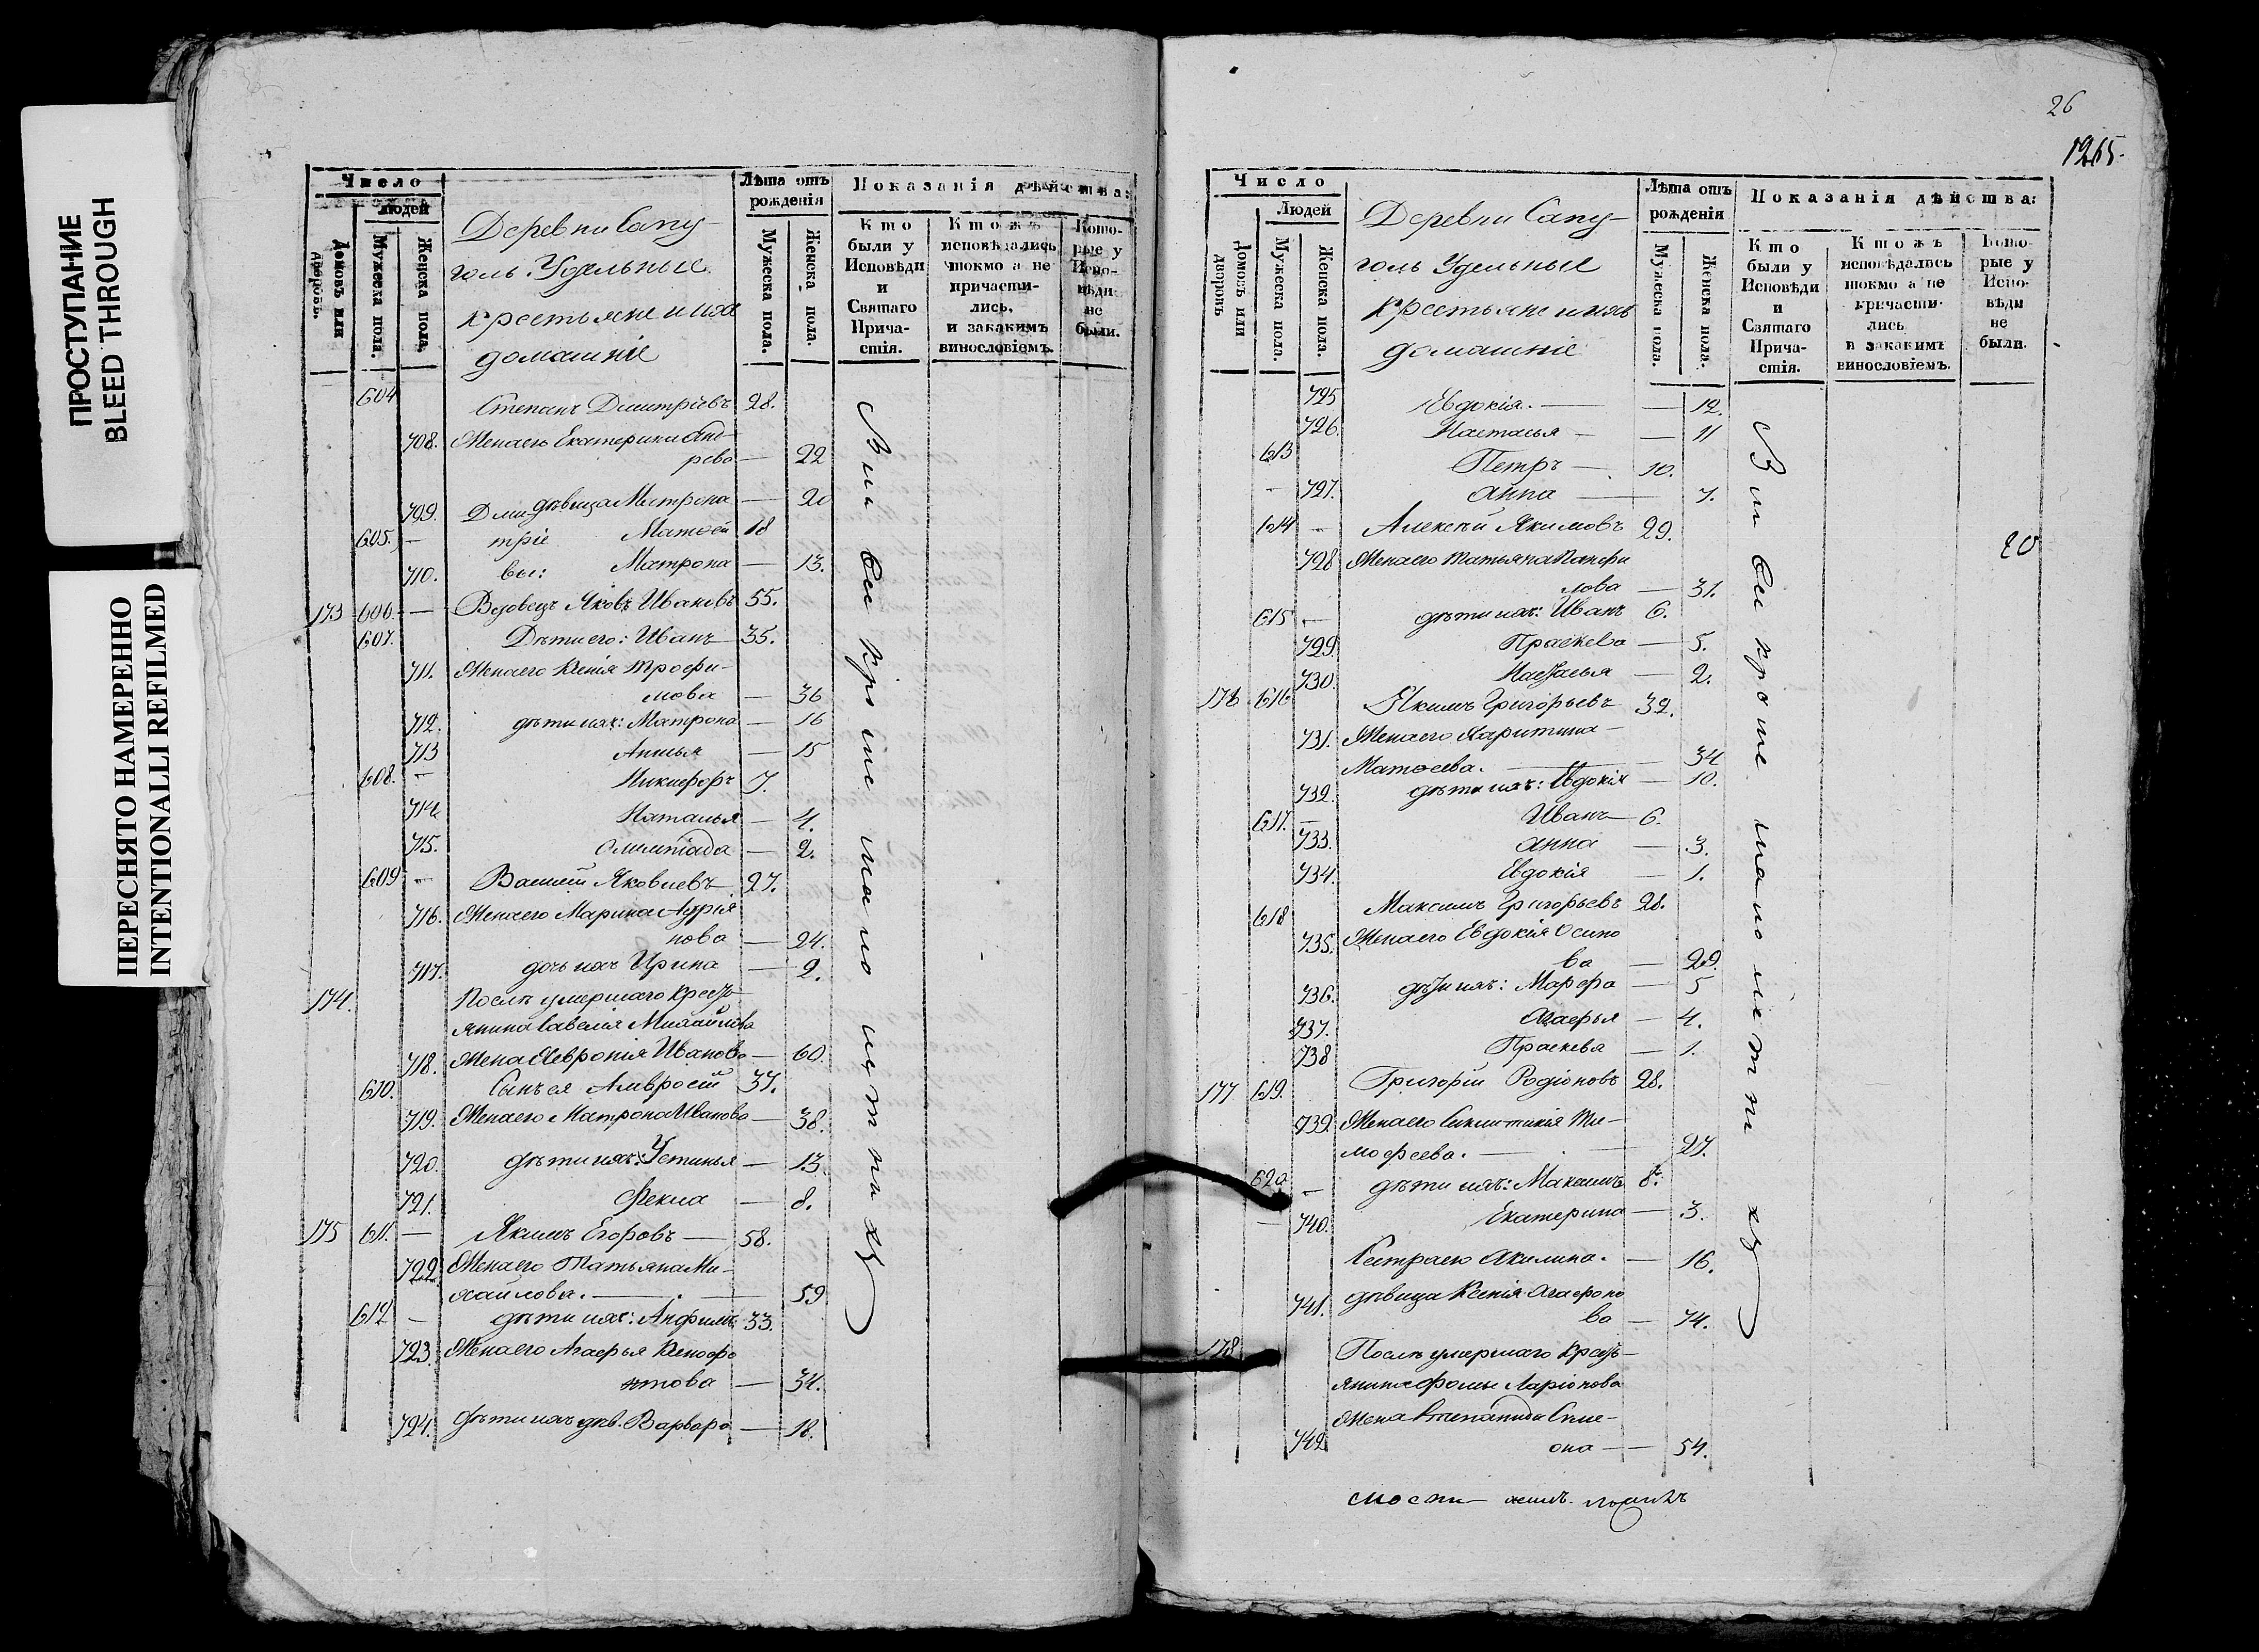 ПРОСТУПАНИЕ
BLEED THROUGH
ПЕРЕСНЯТО НАМЕРЕННО
INTENTIONALLI REFILMED
Число
людей
Домовъ или дворовъ.
Мужеска пола.
Женска пола.
Деревни Сапу-
голь Удельные
крестьяне и ихъ
домашніе
Лѣта отъ рожденія
Мужеска пола.
Женска пола.
Показанія дѣйства:
Кто были у Исповѣди и Святаго Прича- стія.
Ктожъ исповѣдались токмо а не причасти- лись, и закакимъ винословіемъ.
Кото- рые у Испо- вѣди не были.
604 Степанъ Димитріевъ 28.
708. Жена его Екатерина Анд-
рева — 22
709. Дми- дѣвица Матрона — 20
605. — тріе Матѳей 18
710. вы: Матрона — 13.
173 606. — Вдовецъ Яковъ Ивановъ 55.
607. Дѣти его: Иванъ 35.
711. Жена его Ксенія Трофи-
мова — 36
712. дѣти ихъ: Матрона — 16
713 Анисья — 15
608. — Никифоръ 7.
714. Наталья — 4.
715. Олимпіада — 2.
609 — Василій Яковлевъ 27.
716. Жена его Марина Андрія
нова — 24.
717. дочь ихъ Ирина — 2.
174. Послѣ умершаго кресть-
янина Савелія Михайлова
718. Жена Ѳевронія Иванова — 60.
610. Сынъ ея Амвросій 37.
719. Жена его Матрона Иванова — 38.
720. дѣти ихъ: Устинья — 13.
721. Фекла — 8.
175 611. — Якимъ Егоровъ — 58.
722. Жена его Татьяна Ми-
хайлова. — 59
612 — дѣти ихъ: Анфимъ 33.
723. Жена его Агафья Ксенофо
нтова — 34.
724. дѣти ихъ дѣв. Варвара — 18.
26
1265.
Число
Людей
Домовъ или дворовъ
Мужеска пола.
Женска пола.
Деревни Сапу-
голь Удельные
крестьяне и ихъ
домашніе
Лѣта отъ рожденія
Мужеска пола.
Женска пола.
Показанія дѣйства:
Кто были у Исповѣди и Святаго Прича- стія.
Ктожъ исповѣдались токмо а не причасти- лись и закакимъ винословіемъ.
Кото- рые у Испо- вѣди не были.
725 Евдокія. — — 12.
726. Настасья — — 11
613 Петръ — 10.
— 727. Анна — 7.
614 — Алексѣй Якимовъ 29.
728 Жена его Татьяна Панфи
лова — 31.
615 — дѣти ихъ: Иванъ 6.
729. Праскева — 5.
730. Настасья — 2.
176 616 Якимъ Григорьевъ 32.
731. Жена его Харитина
Матѳеева. — 34
732. дѣти ихъ: Евдокія — 10.
617. — Иванъ 6.
733. Анна — 3.
734. Евдокія — 1.
618 Максимъ Григорьевъ 28.
735. Жена его Евдокія Осипо
ва — 29.
736. дѣти ихъ: Марфа — 5
737. Агафья — 4.
738 Праскева — 1.
177 619. Григорій Родіоновъ 28.
739. Жена его Синклитикія Ти-
мофеева. — 27.
620 — дѣти ихъ: Максимъ 8.
— 740. Екатерина — 3.
Сестра его Акилина. — 16.
741. дѣвица Ксенія Агафоно
ва — 74.
178 Послѣ умершаго кресть-
янина Фомы Ларіонова
жена Степанида Симе-
742 она — 54.
20